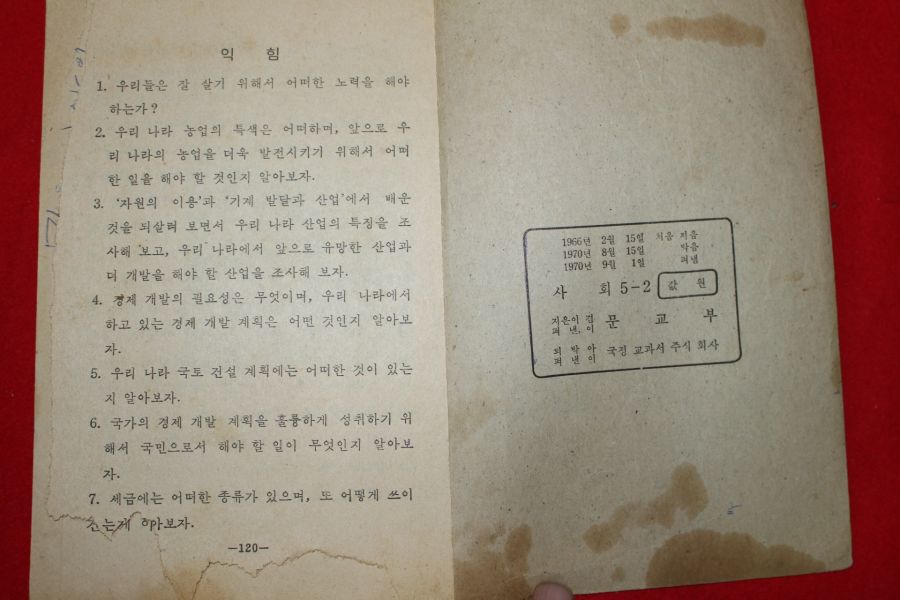 익 힘
1. 우리들은 잘 살기 위해서 어떠한 노력을 해야
하는가?
2. 우리 나라 농업의 특색은 어떠하며, 앞으로 우
리 나라의 농업을 더욱 발전시키기 위해서 어떠
한 일을 해야 할 것인지 알아보자.
3. '자원의 이용'과 '기계 발달과 산업'에서 배운
것을 되살려 보면서 우리 나라 산업의 특징을 조
사해 보고, 우리 나라에서 앞으로 유망한 산업과
더 개발을 해야 할 산업을 조사해 보자.
4. 경제 개발의 필요성은 무엇이며, 우리 나라에서
하고 있는 경제 개발 계획은 어떤 것인지 알아보
자.
5. 우리 나라 국토 건설 계획에는 어떠한 것이 있는
지 알아보자.
6. 국가의 경제 개발 계획을 훌륭하게 성취하기 위
해서 국민으로서 해야 할 일이 무엇인지 알아보
자.
7. 세금에는 어떠한 종류가 있으며, 또 어떻게 쓰이
는지 알아보자.
—120—
1966년 2월 15일 처음 지음
1970년 8월 15일 박음
1970년 9월 1일 펴냄
사 회 5-2 값 원
지은이 겸
펴 낸 이 문 교 부
되 박 아
펴 낸 이 국정 교과서 주식 회사